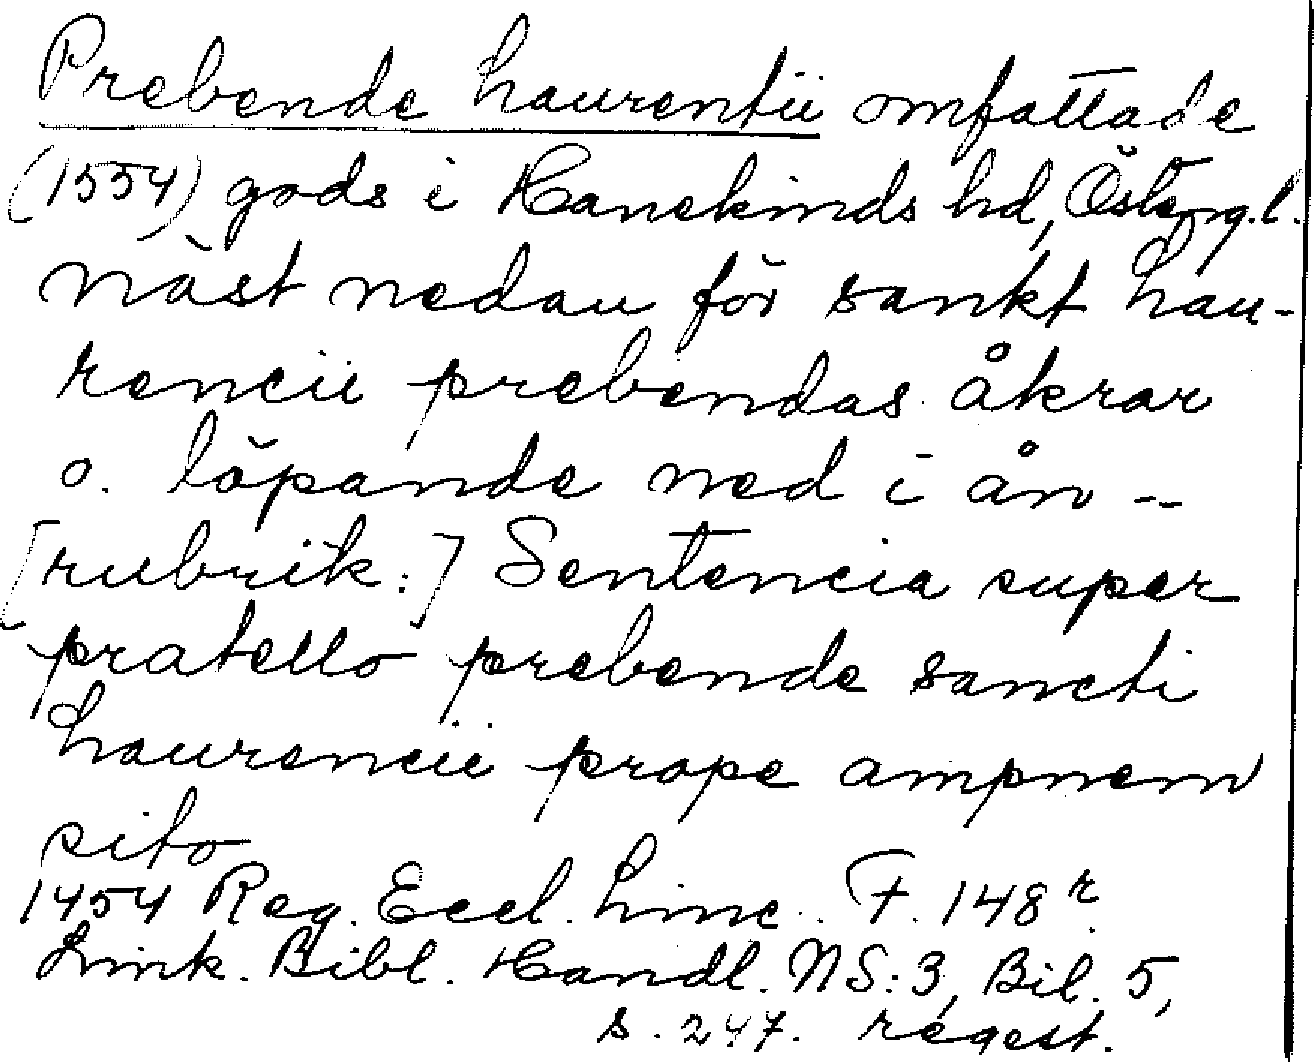 Prebende Laurentii omfattade
(1554) gods i Hanekinds hd, Österg.l.
näst nedan för sankt Lau-
rencii prebendas åkrar
o. löpande ned i ån --
[rubrik:] Sentencia super
pratello prebende sancti
Laurencii prope ampnem
sito
1454 Reg. Eccl. Linc. F. 148r
Link. Bibl. Handl. NS: 3, Bil. 5,
s. 247. regest.